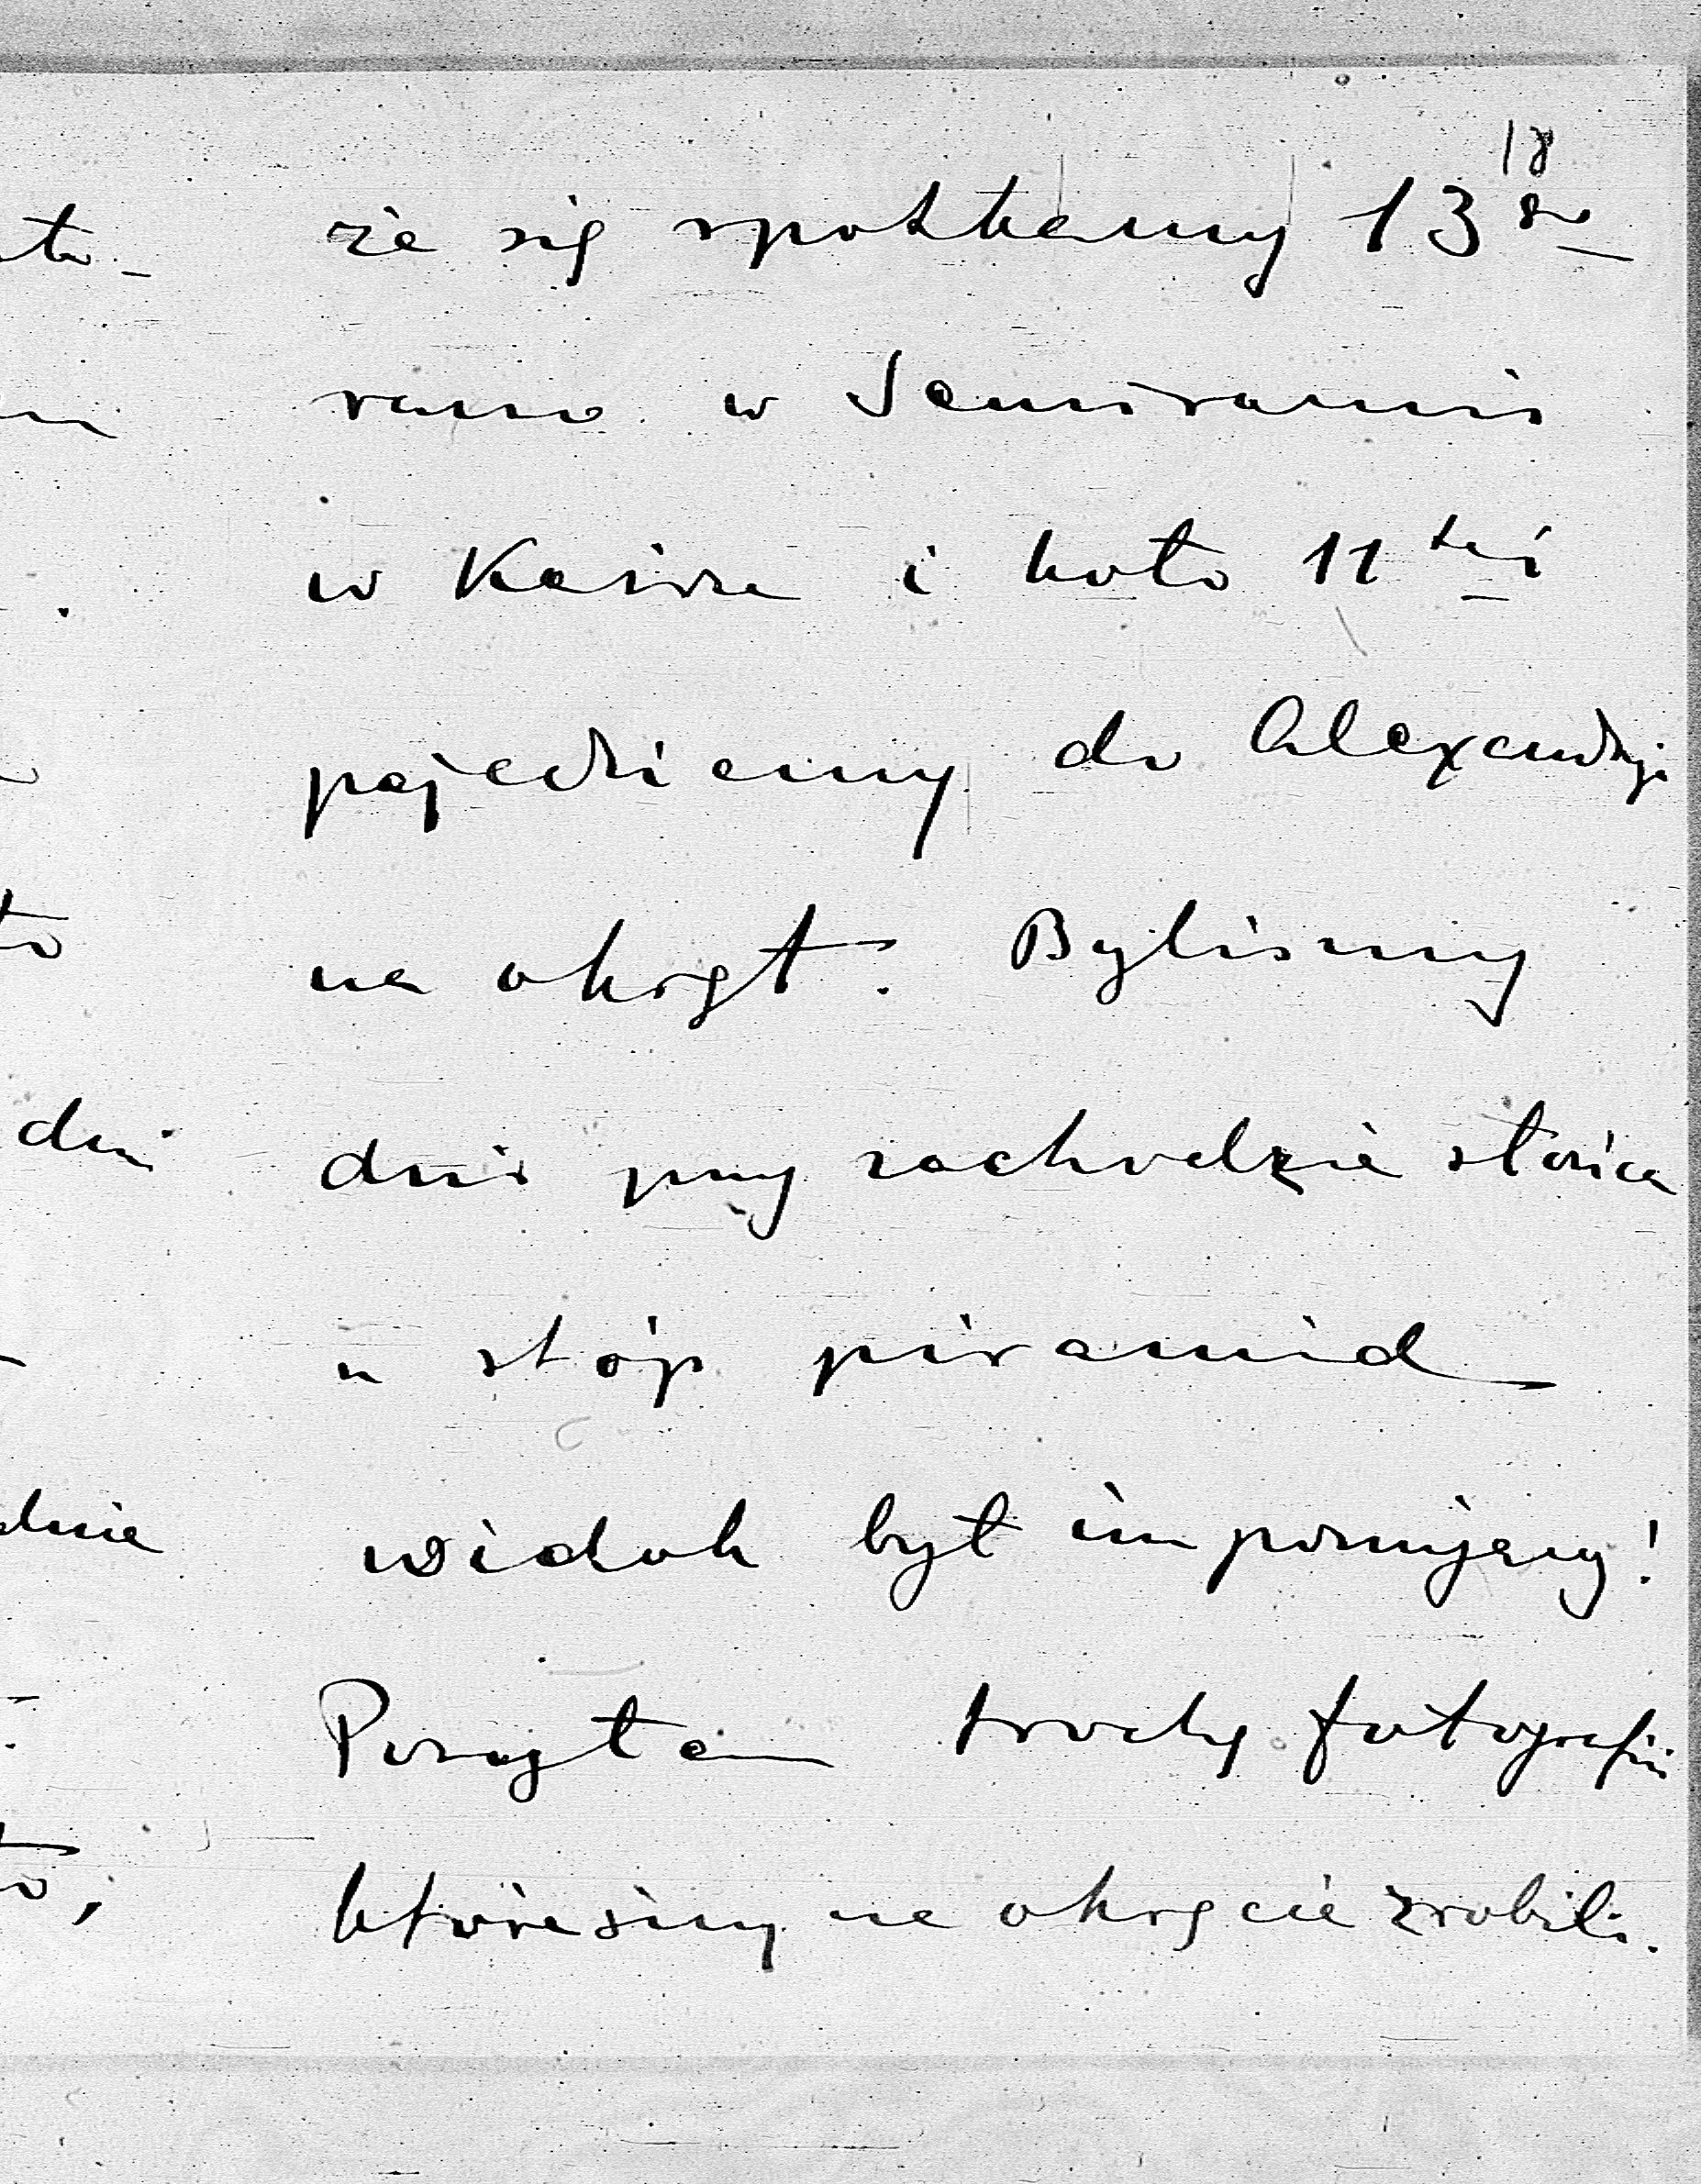 18
że się spotkamy 13go
rano w Semiramis
w Kairze i koło 11tej
pojedziemy do Alexandrji
na okręt. Byliśmy
dziś przy zachodzie słońca
u stóp piramid
widok był imponujący!
Posyłam trochę fotografii
któreśmy na okręcie zrobili.
dni
dnie